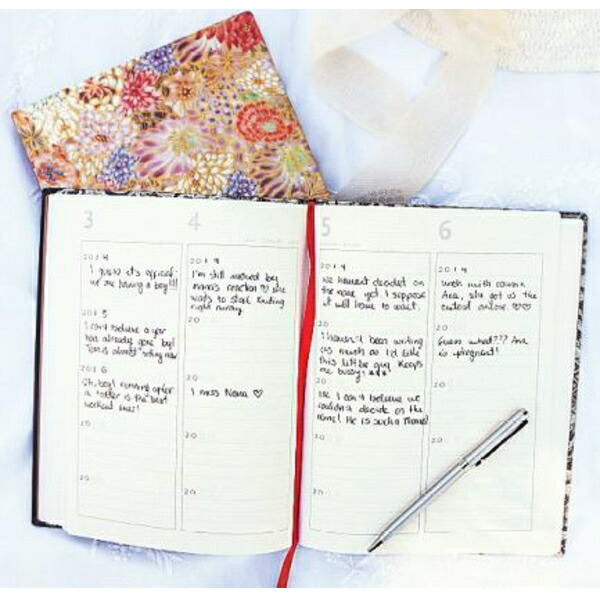 3
2014
I guess it's official-
we are having a boy!!!
2015
I can't believe a year
has already gone by!
almost
2016
Oh, boy! running after
a toddler is the best
workout ever!
20
20
4
2014
I'm still moved by
nana's reaction ♡ she
wants to start knitting
right away
20
20
I miss Nana ♡
20
20
5
2014
We haven't decided on
the name yet. I suppose
it will have to wait.
20
I haven't been writing
as much as I'd like
this little guy keeps
me busy!
20
I can't believe we
couldn't decide on the
name! He is such a
20
20
6
2014
Lunch with cousin
Ana, she got us the
cutest ♡♡
20
Guess what??? Ana
is pregnant!
20
20
20